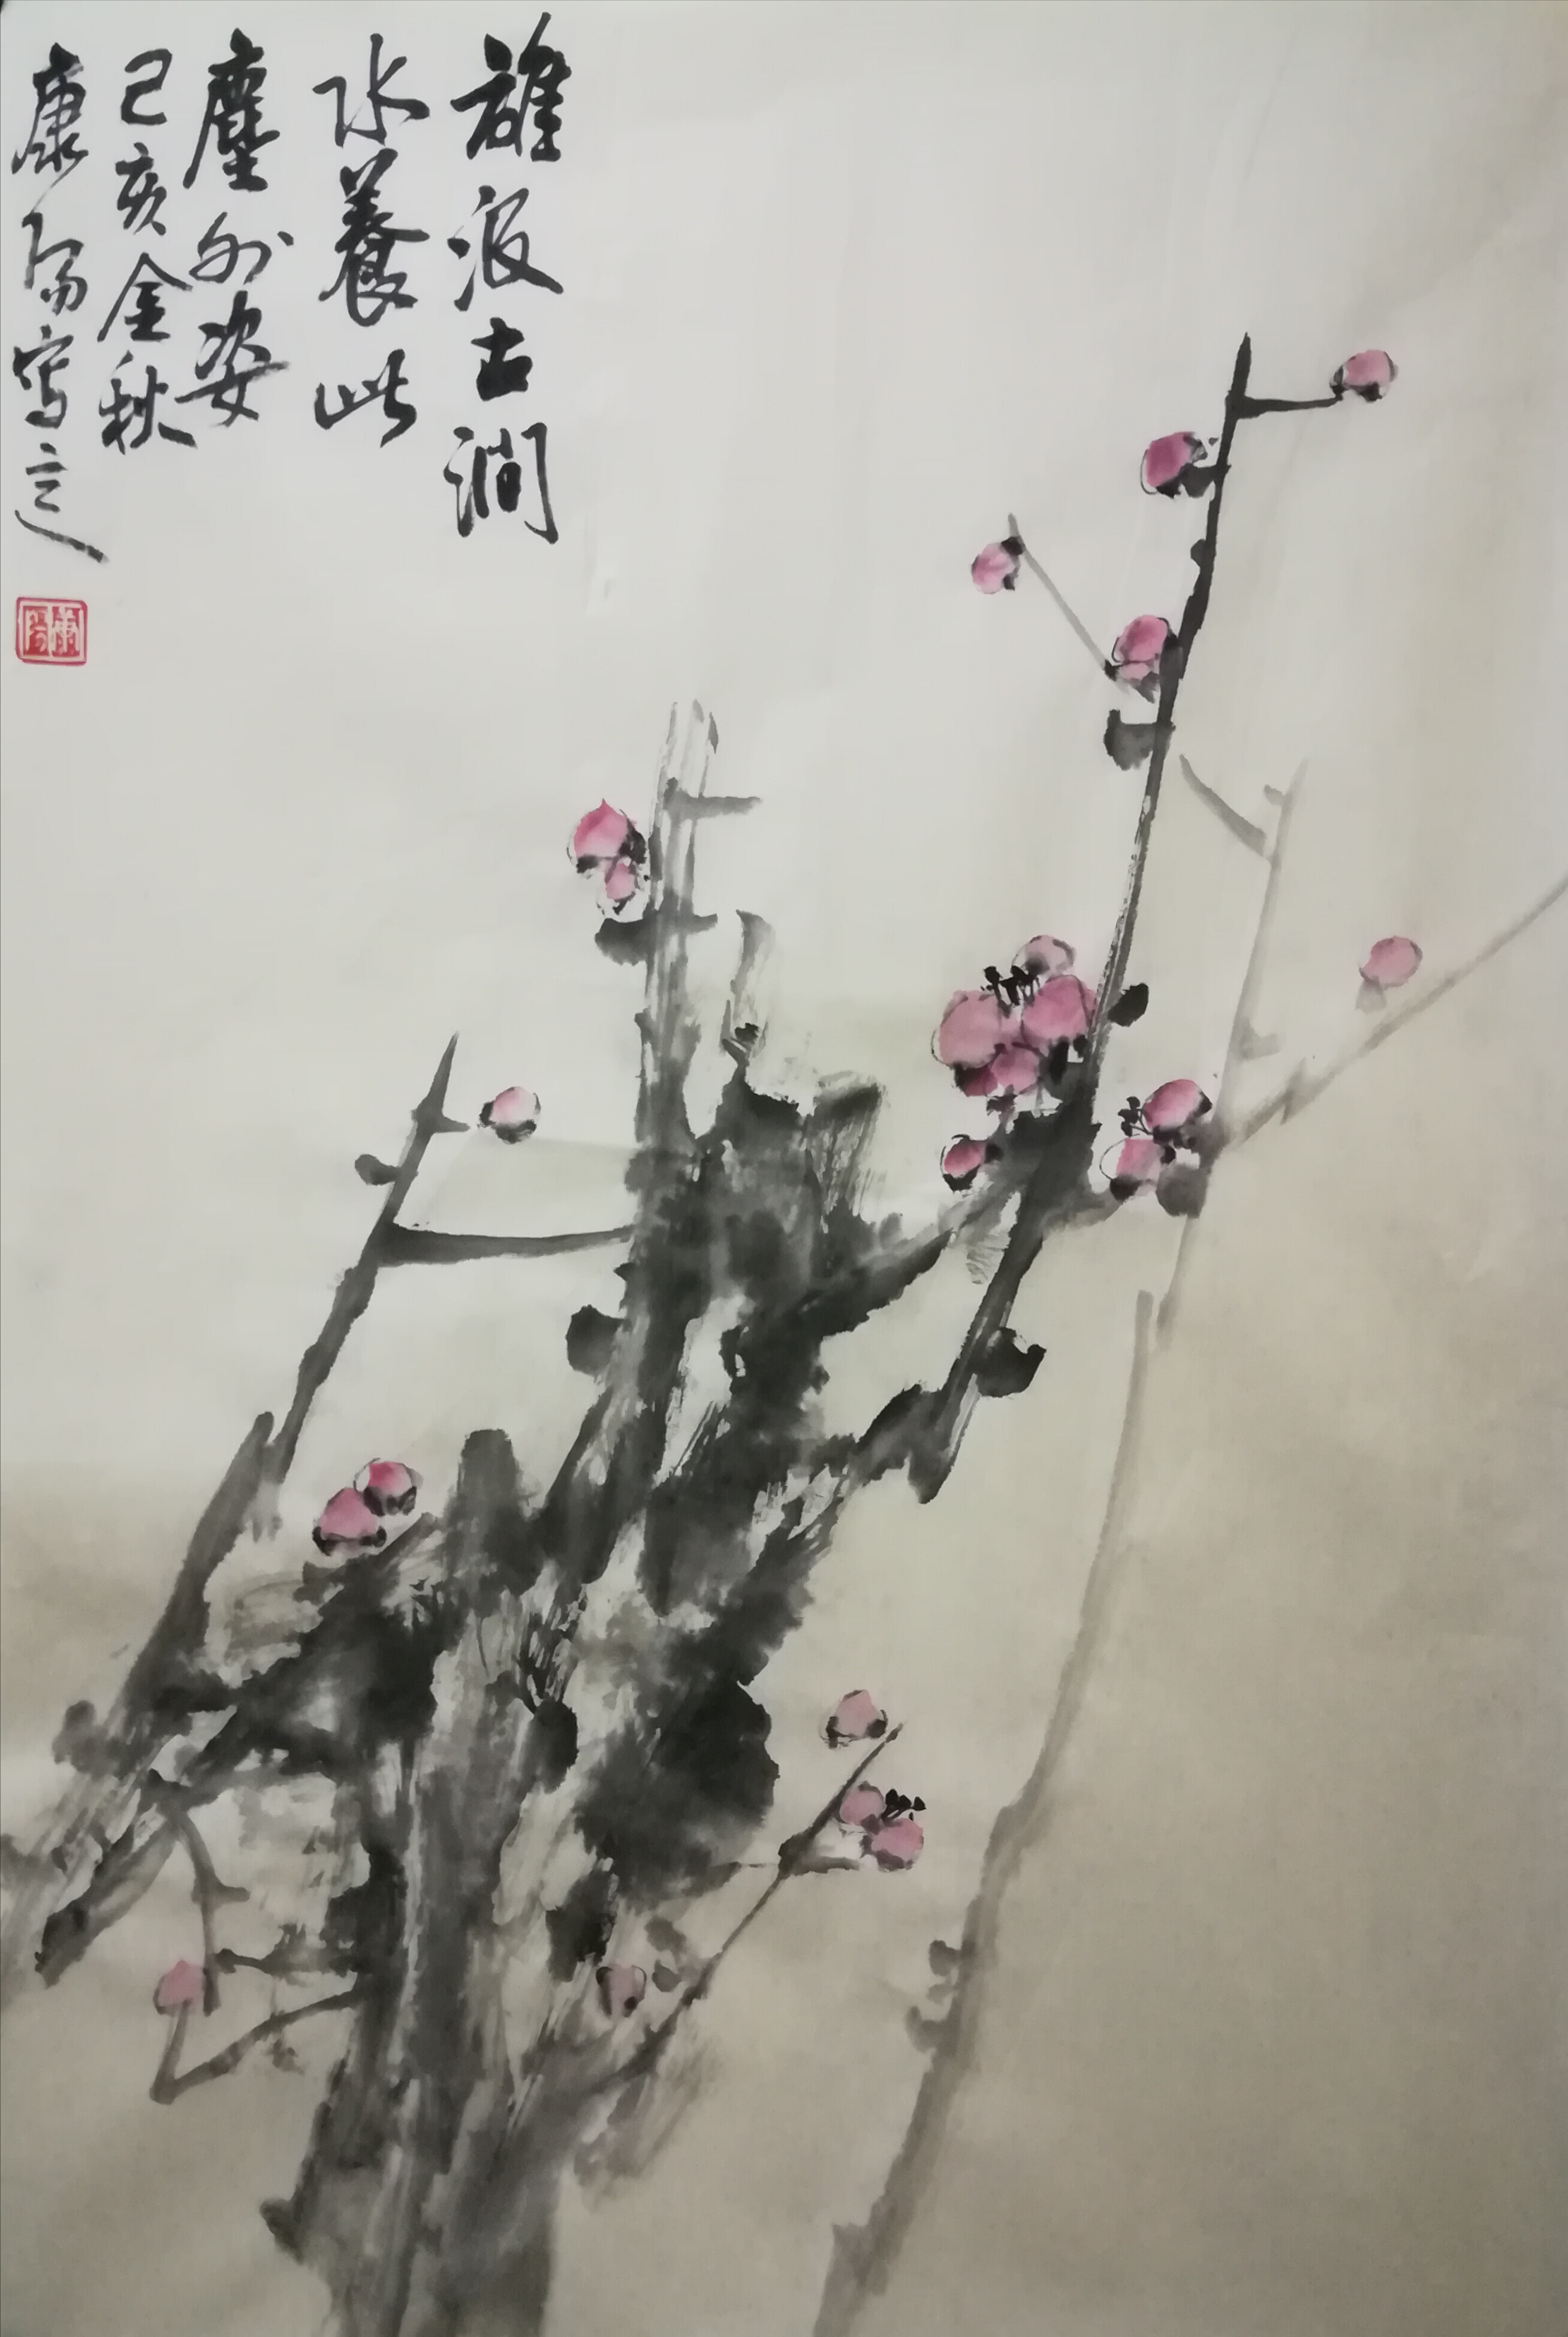 誰汲古澗
水養此
塵外姿
己亥金秋
康陽寫之
康陽